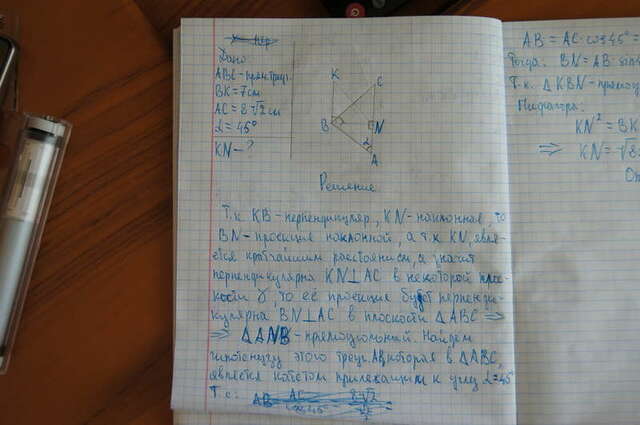 Дано
ABC – прям. треуг.
BK = 7 см
AC = 8√2 см
α = 45°
KN – ?
K
C
B
N
α
A
Решение
Т.к. KB – перпендикуляр, KN – наклонная, то
BN – проекция наклонной, а т.к KN явля-
ется кратчайшим расстоянием, а значит
перпендикулярна KN⊥AC в некоторой плос-
кости γ, то её проекция будет перпенди-
кулярна BN⊥AC в плоскости ΔABC ⇒
⇒ ΔANB – прямоугольный. Найдем
гипотенузу этого треуг. AB, которая в ΔABC,
является катетом прилежащим к углу α=45°
Т.е:
AB = AC · cos 45° =
Тогда: BN = AB · sin 4
Т.к. ΔKBN – прямоуг
Пифагора:
KN² = BK
⇒ KN = √8
От